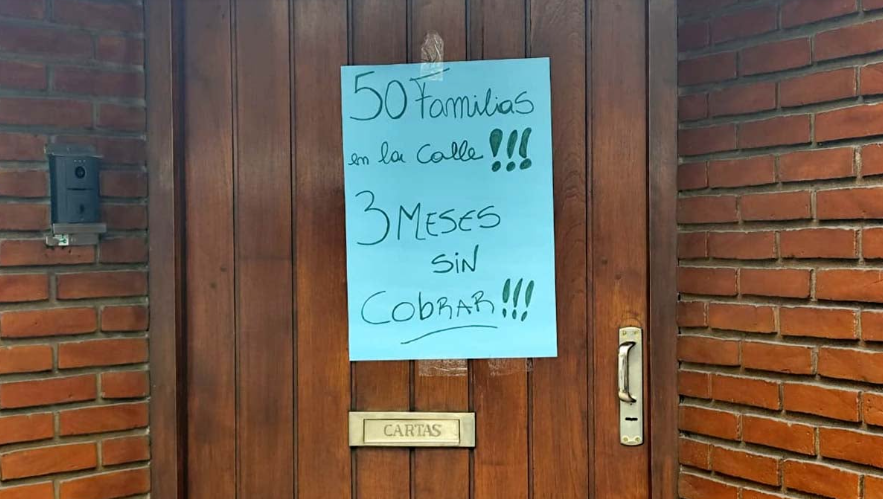 50 Familias
en la Calle!!!
3 MESES
SiN
CobRAR!!!
CARTAS